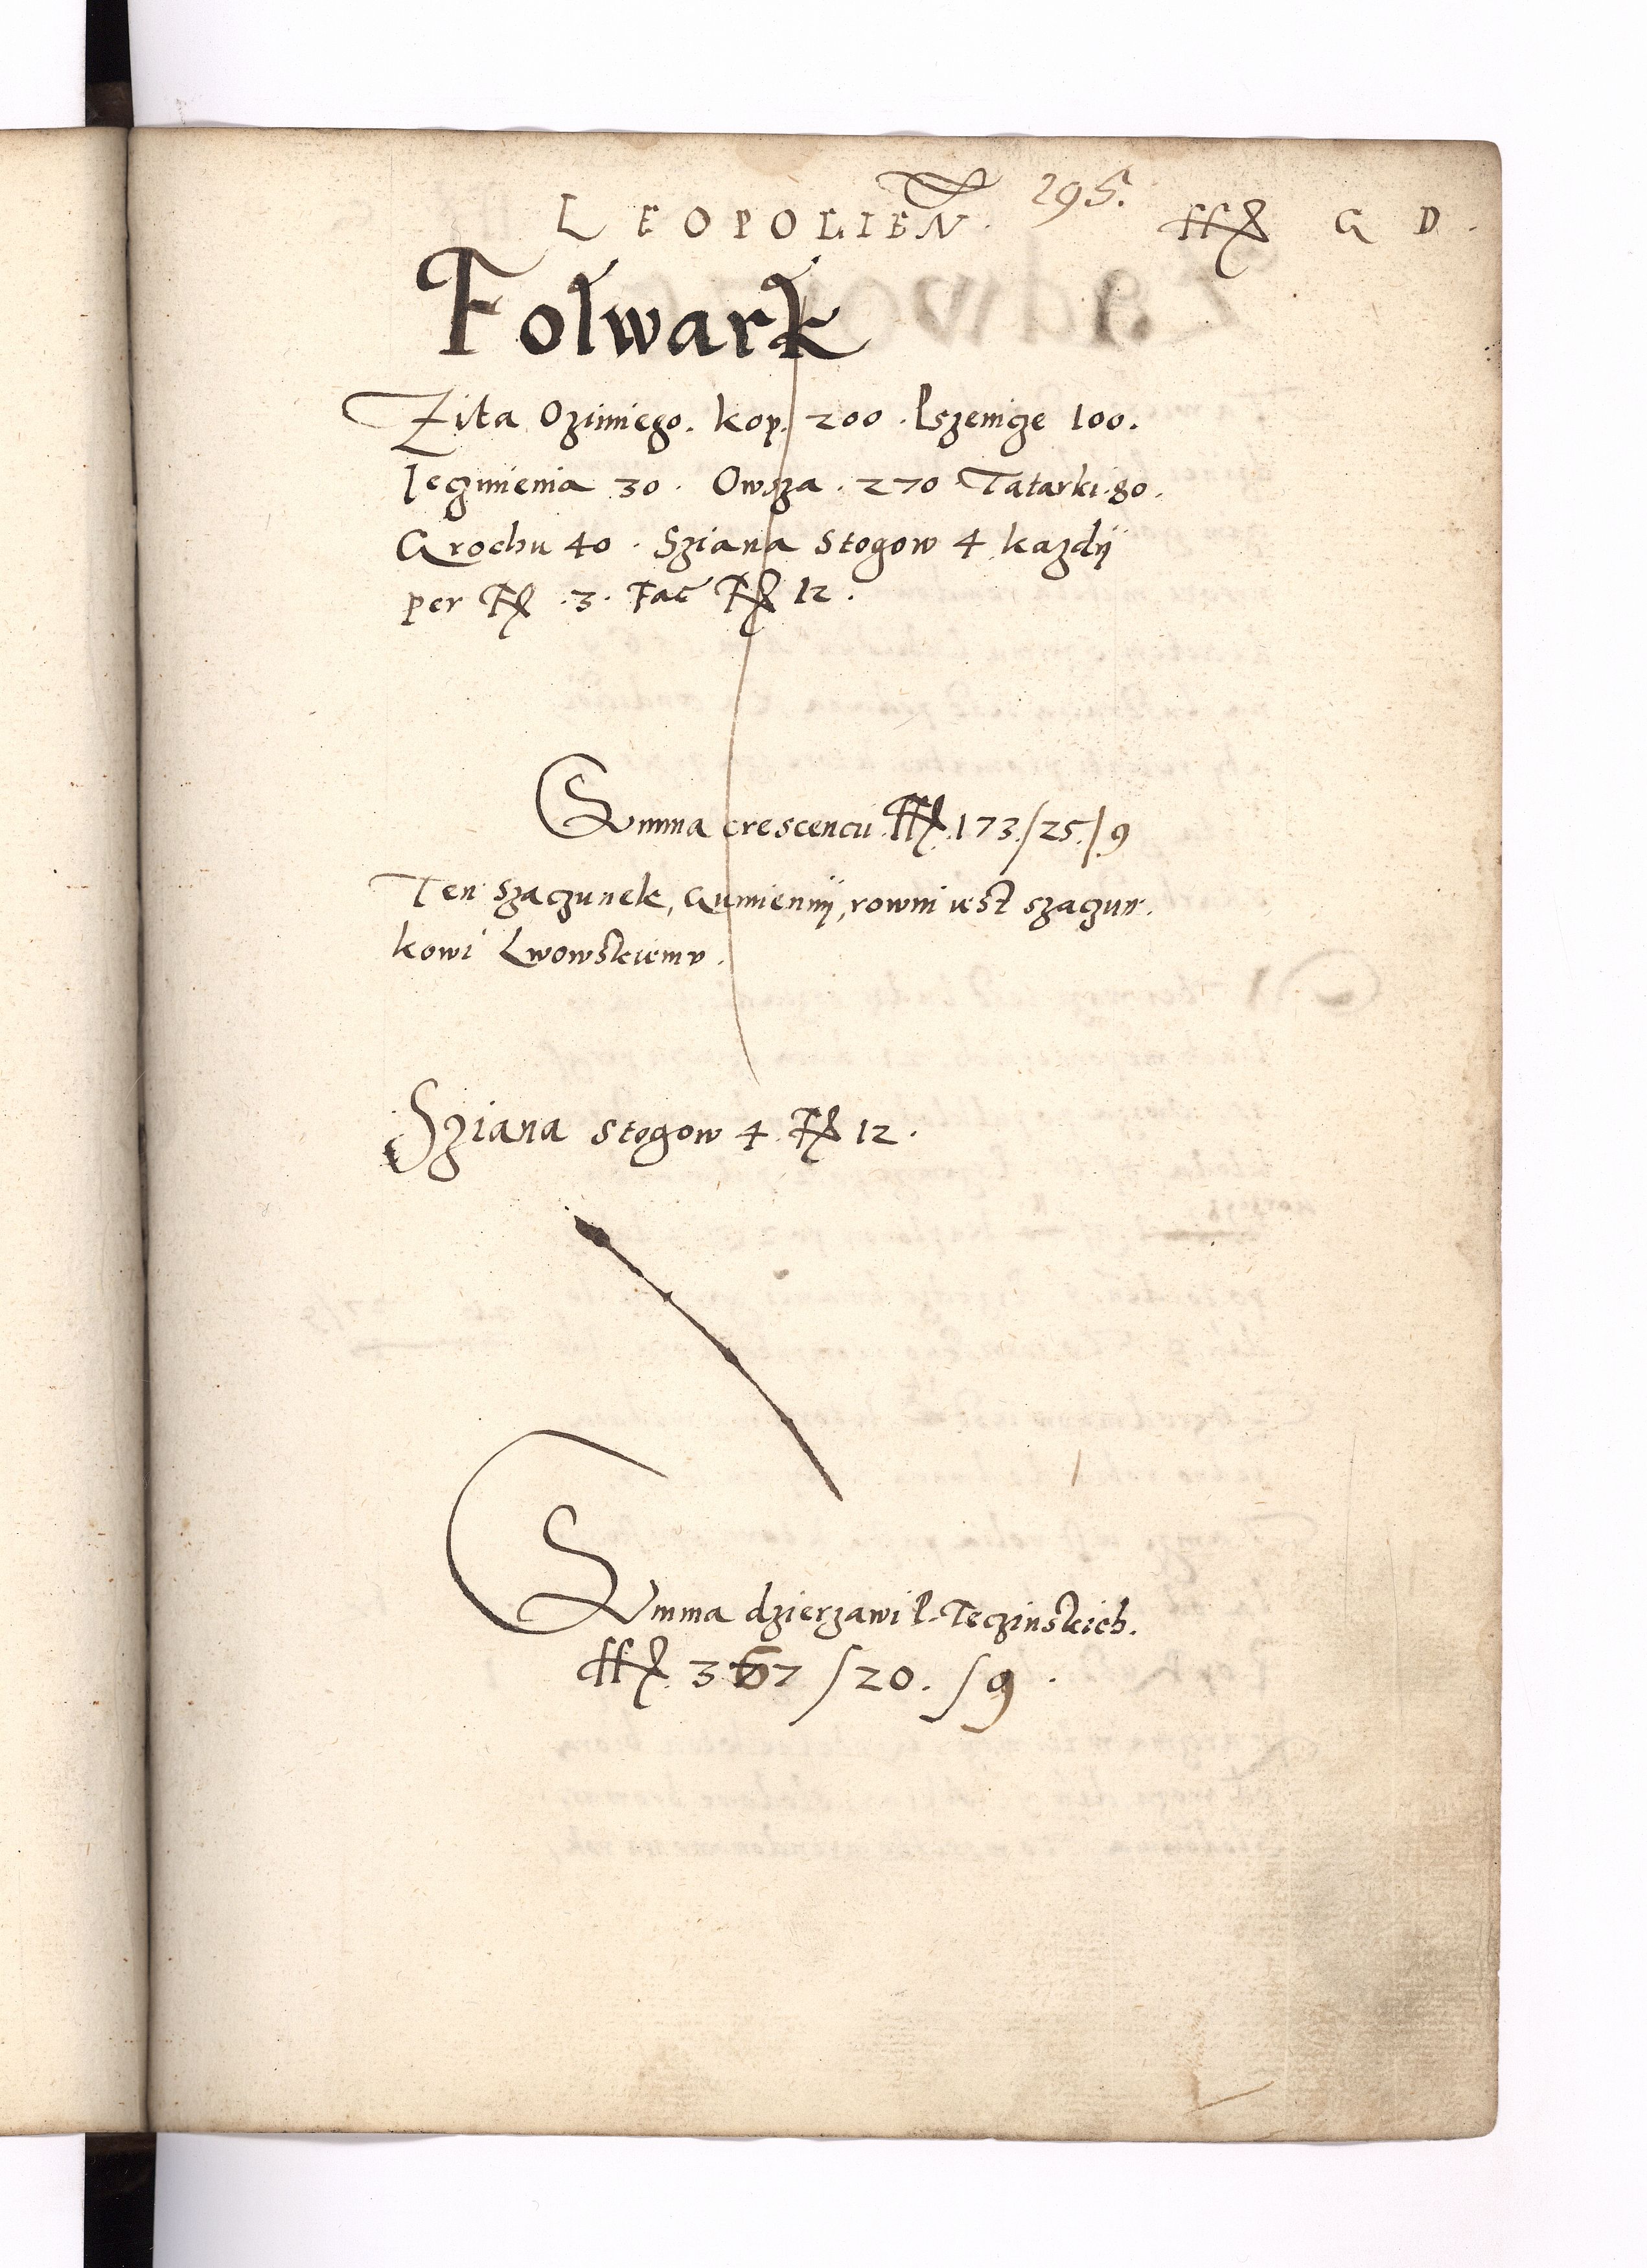 LEOPOLIEN. 295. ff G D.
Folwark
Zita Ozimiego. kop. 200. Pszenicze 100.
Jeczmienia 30. Owsza. 270 Tatarki. 80.
Grochu 40. Sziana Stogow 4 kazdy
per ff .3. Fac ff 12.
Summa crescencii ff. 173/25/9
Ten szaczunek, Gumienny, rowni iest szaczun.
kowi Lwowskiemu.
Sziana stogow 4 ff 12.
Summa dzierzawi P. Teczinskich.
ff 367/20./9.